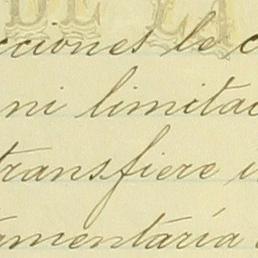 DE LA
cciones le c
ni limitac
transfiere i
amentaría